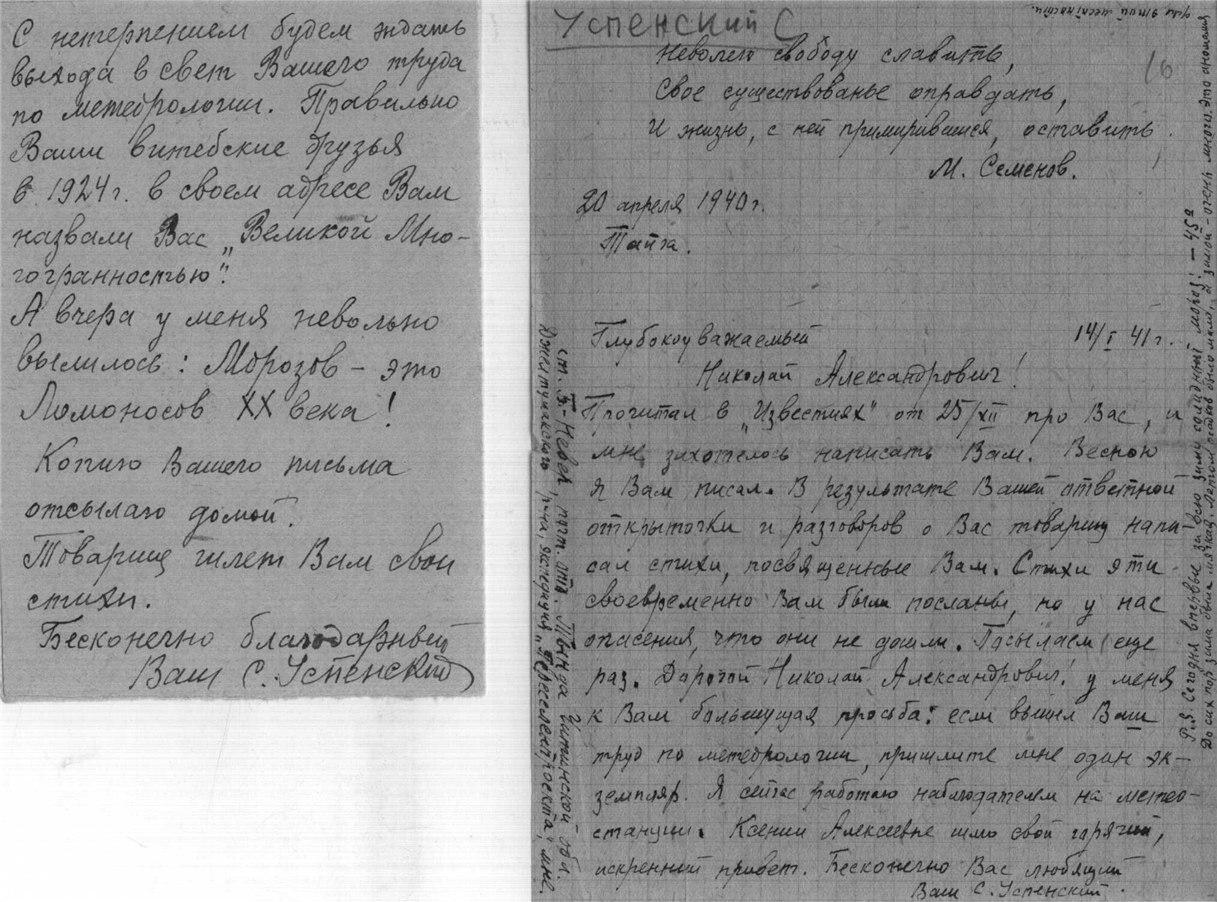 С нетерпением будем ждать
выхода в свет Вашего труда
по метеорологии. Правильно
Ваши витебские друзья
в 1924 г. в своем адресе Вам
назвали Вас „Великой Мно-
гогранностью".
А вчера у меня невольно
вылилось: Морозов – это
Ломоносов XX века!
Копию Вашего письма
отсылаю домой.
Товарищ шлет Вам свои
стихи.
Бесконечно благодарный
Ваш С. Успенский
Успенский С
16
Неволею свободу славить,
Свое существованье оправдать,
И жизнь, с ней примирившися, оставить.
М. Семенов.
20 апреля 1940 г.
Тайга.
Глубокоуважаемый 14/I 41 г.
Николай Александрович!
Прочитал в „Известиях" от 25/XII про Вас, и
мне захотелось написать Вам. Весною
я Вам писал. В результате Вашей ответной
открыточки и разговоров о Вас товарищ напи
сал стихи, посвященные Вам. Стихи эти
своевременно Вам были посланы, но у нас
опасения, что они не дошли. Посылаем еще
раз. Дорогой Николай Александрович! у меня
к Вам большущая просьба: если вышел Ваш
труд по метеорологии, пришлите мне один эк-
земпляр. Я сейчас работаю наблюдателем на метео-
станции. Ксении Алексеевне шлю свой горячий,
искренний привет. Бесконечно Вас любящий
Ваш С. Успенский.
ст. Б-Невер, почт. отд. Тында Читинской обл.
Джелтулакского р-на, экспедиция „Переселентроекта", мне.
P.S. Сегодня впервые за всю зиму солидный мороз: – 45°
До сих пор зима была мягкая. Летом осадков было мало, а зимой – очень много. Это аномалия
для этой местности.